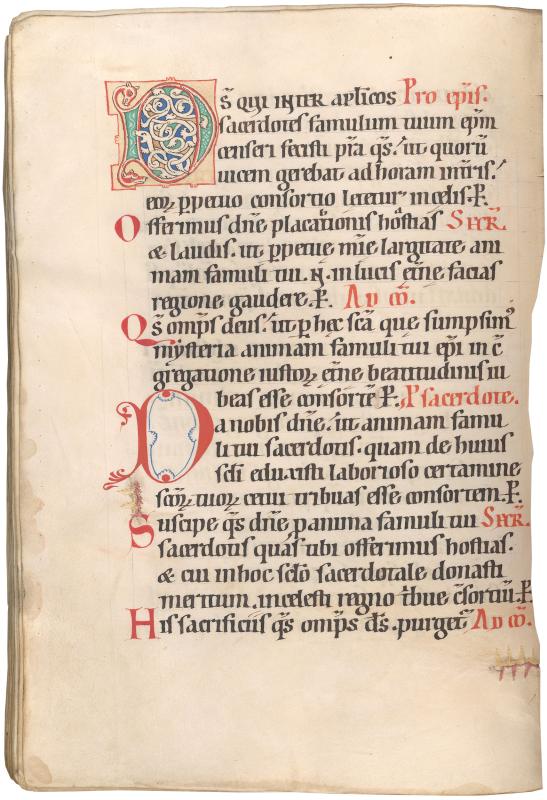 Ds̄ qui inter ap̄licos Pro ep̄is.
sacerdotes famulum tuum ep̄m
censeri fecisti pͬa qs̄. ut quorū
uicem gerebat ad horam int̄ris.
eoꝝ ꝑpetuo consortio letetur in cęlis. P̄.
Offerimus dn̄e placationis hostias Secr̄.
& laudis. ut ꝑpetue mīe largitate ani
mam famuli tui. N̄. in lucis et̄ne facias
regione gaudere. P̄. Ad cō.
Qs̄ omp̄s deus. ut ꝑ hec sc̄a que sumpsimꝰ
mysteria animam famuli tui ep̄i in c̄
gregatione iustoꝝ et̄ne beatitudinis iu
beas esse consortē P̄. P̱ sacerdote.
Da nobis dn̄e. ut animam famu
li tui sacerdotis. quam de huius
sc̄li eduxisti laborioso certamine
sc̄oꝝ tuoꝝ cetui tribuas esse consortem. P̄.
Suscipe qs̄ dn̄e ꝑ anima famuli tui Secr̄.
sacerdotis quas tibi offerimus hostias.
& cui in hoc sc̄lo sacerdotale donasti
meritum. in celesti regno t̄bue c̄sortiū. P̄
His sacrificiis qs̄ omp̄s ds̄. purget̄ Ad cō.